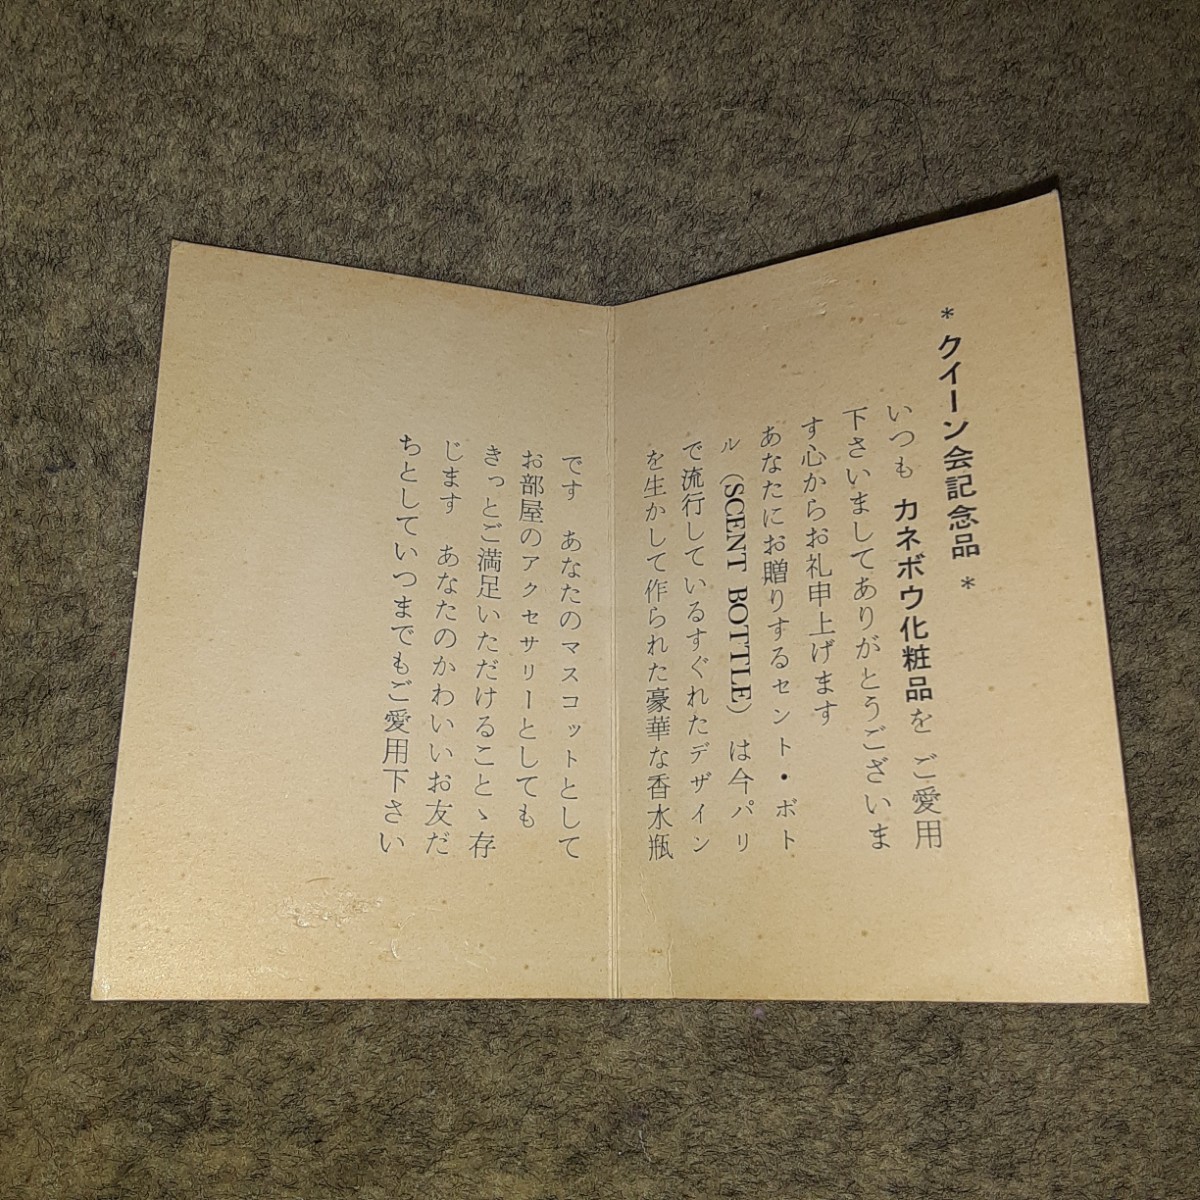 * クイーン会記念品 *
いつも カネボウ化粧品を ご愛用
下さいましてありがとうございま
す心からお礼申上げます
あなたにお贈りするセント・ボト
ル (SCENT BOTTLE) は今パリ
で流行しているすぐれたデザイン
を生かして作られた豪華な香水瓶
です あなたのマスコットとして
お部屋のアクセサリーとしても
きっとご満足いただけることゝ存
じます あなたのかわいいお友だ
ちとしていつまでもご愛用下さい